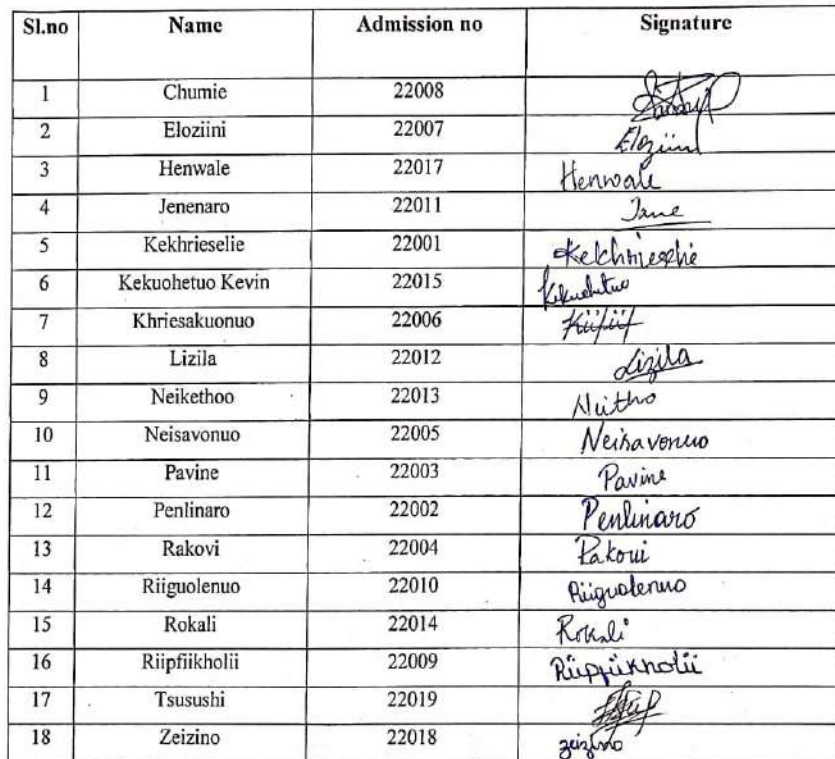 Sl.no Name Admission no Signature
1 Chumie 22008
2 Eloziini 22007 Eloziini
3 Henwale 22017 Henwale
4 Jenenaro 22011 Jane
5 Kekhrieselie 22001 Kekhrieselie
6 Kekuohetuo Kevin 22015 Kekuohetuo
7 Khriesakuonuo 22006
8 Lizila 22012 Lizila
9 Neikethoo 22013
10 Neisavonuo 22005 Neisavonuo
11 Pavine 22003 Pavine
12 Penlinaro 22002 Penlinaro
13 Rakovi 22004 Rakovi
14 Riiguolenuo 22010 Riiguolenuo
15 Rokali 22014 Rokali
16 Riipfiikholii 22009 Riipfiikholii
17 Tsusushi 22019
18 Zeizino 22018 zeizino